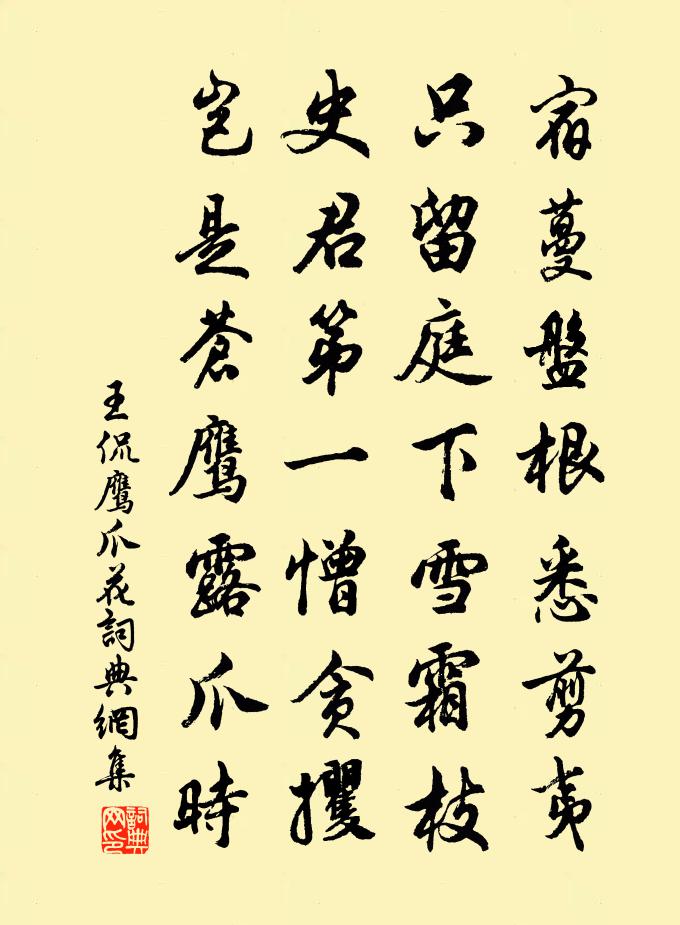 宿蔓盤根悉剪夷
只留庭下雪霜枝
史君第一憎貪攫
豈是蒼鷹露爪時
王侃鷹爪花詞典網集
詞典网印